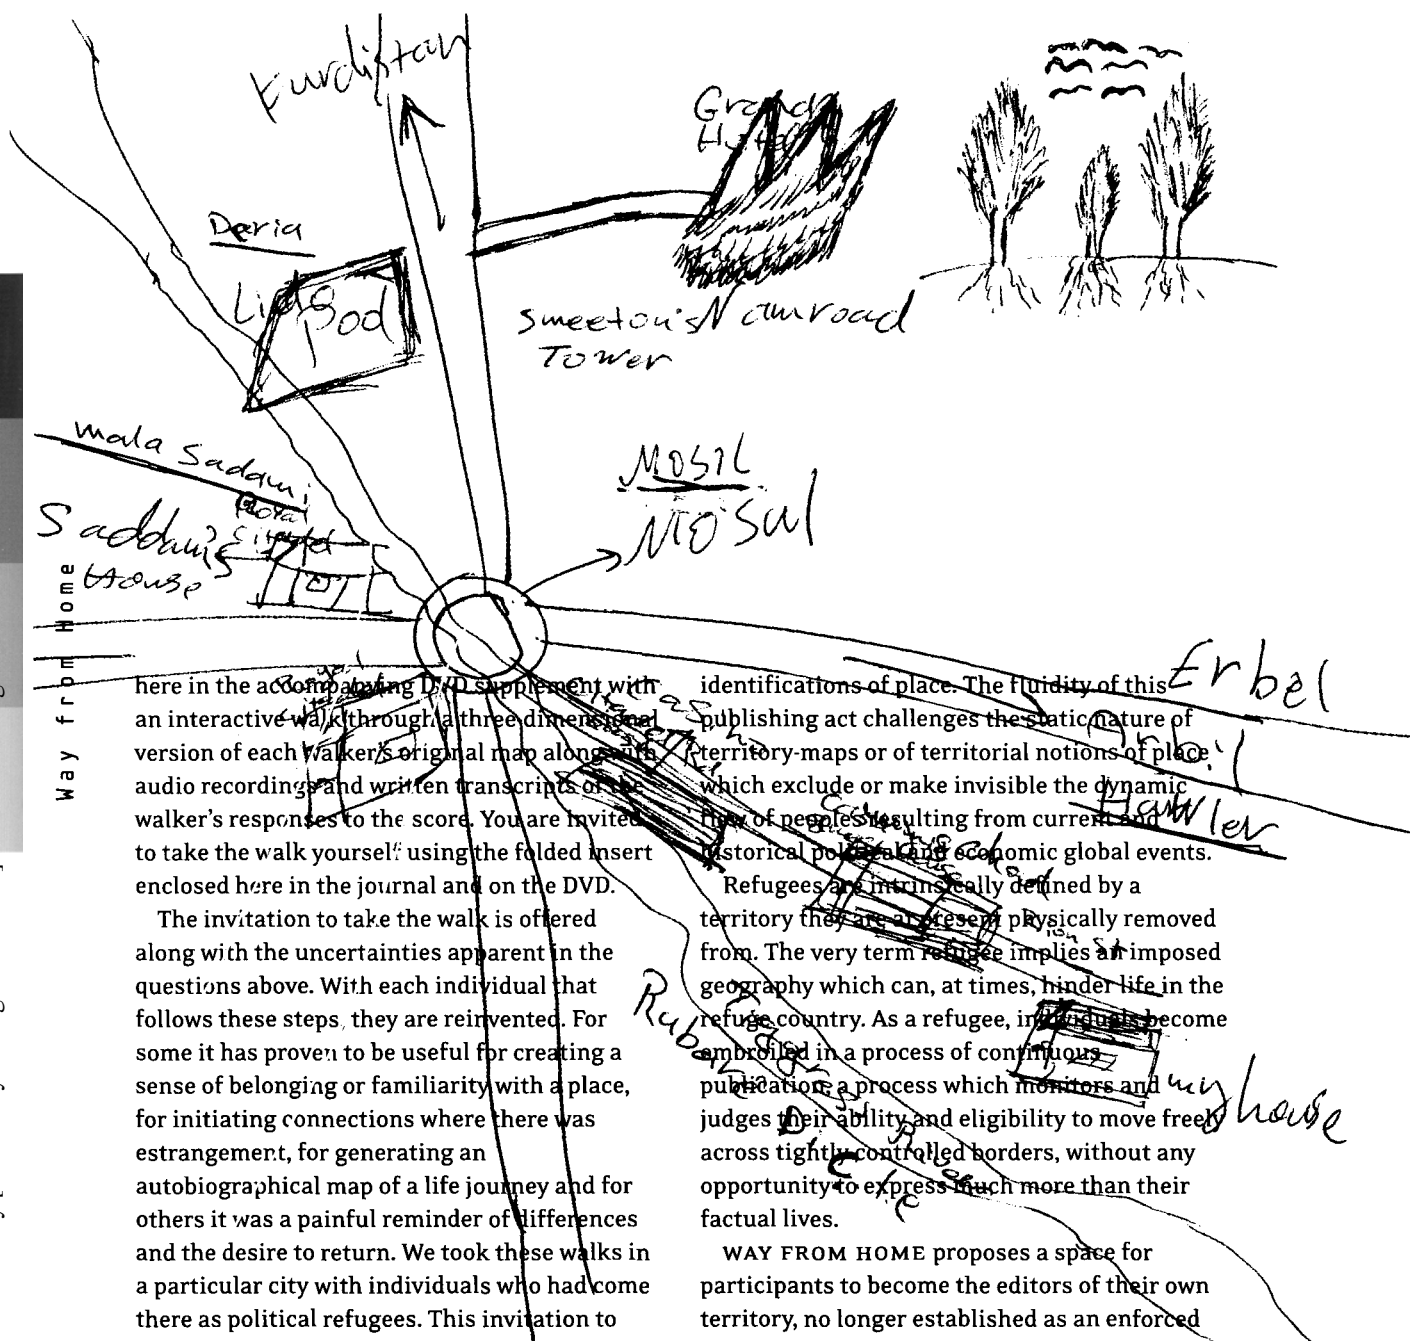 Kurdistan
Grand
Hotel
Deria
Lido
Pod
Smeeton's Namroad
Tower
mala Sadami
Royal
Saddam's
House
Mosil
Mosul
Erbel
Arbil
Hawler
Way from Home
here in the accompanying DVD supplement with
an interactive walk through a three dimensional
version of each walker's original map along with
audio recordings and written transcripts of the
walker's responses to the score. You are invited
to take the walk yourself using the folded insert
enclosed here in the journal and on the DVD.
The invitation to take the walk is offered
along with the uncertainties apparent in the
questions above. With each individual that
follows these steps, they are reinvented. For
some it has proven to be useful for creating a
sense of belonging or familiarity with a place,
for initiating connections where there was
estrangement, for generating an
autobiographical map of a life journey and for
others it was a painful reminder of differences
and the desire to return. We took these walks in
a particular city with individuals who had come
there as political refugees. This invitation to
identifications of place. The fluidity of this
publishing act challenges the static nature of
territory-maps or of territorial notions of place,
which exclude or make invisible the dynamic
flow of peoples resulting from current and
historical political and economic global events.
Refugees are intrinsically defined by a
territory they are at present physically removed
from. The very term refugee implies an imposed
geography which can, at times, hinder life in the
refuge country. As a refugee, individuals become
embroiled in a process of continuous
publication, a process which monitors and
judges their ability and eligibility to move freely
across tightly controlled borders, without any
opportunity to express much more than their
factual lives.
WAY FROM HOME proposes a space for
participants to become the editors of their own
territory, no longer established as an enforced
my house
Rubari Dicle
River